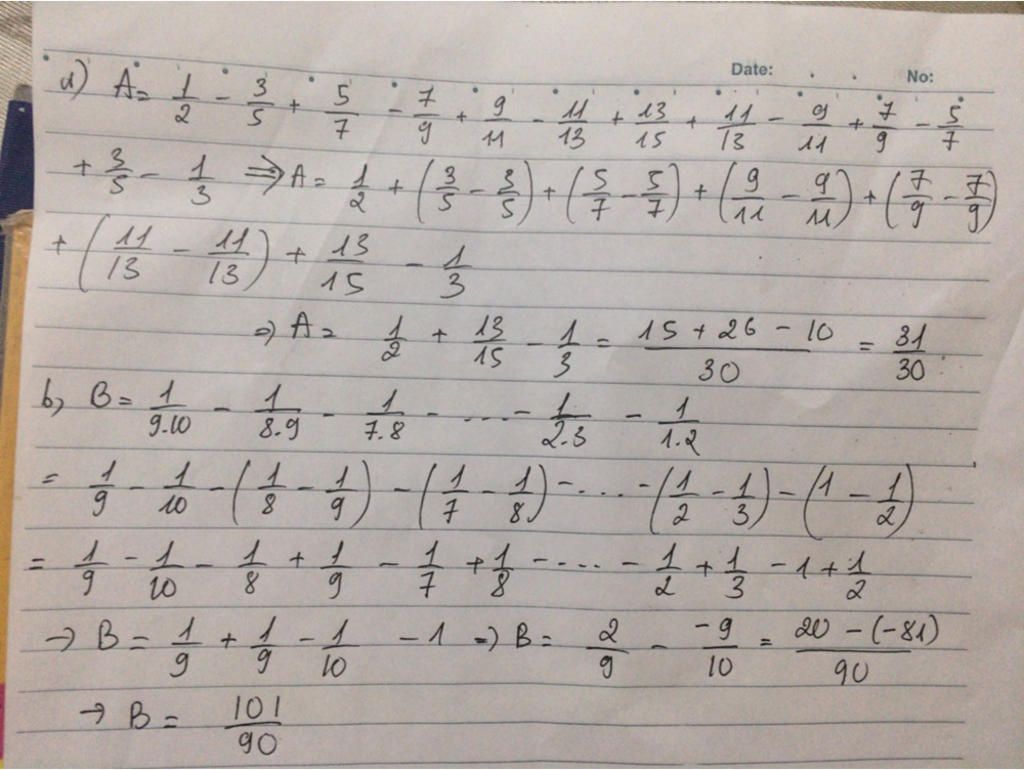 Date: No:
a) A = 1/2 - 3/5 + 5/7 - 7/9 + 9/11 - 11/13 + 13/15 + 11/13 - 9/11 + 7/9 - 5/7
+ 3/5 - 1/3 => A = 1/2 + (3/5 - 3/5) + (5/7 - 5/7) + (9/11 - 9/11) + (7/9 - 7/9)
+ (11/13 - 11/13) + 13/15 - 1/3
=> A = 1/2 + 13/15 - 1/3 = (15 + 26 - 10)/30 = 31/30
b, B = 1/9.10 - 1/8.9 - 1/7.8 - .... - 1/2.3 - 1/1.2
= 1/9 - 1/10 - (1/8 - 1/9) - (1/7 - 1/8) - .... - (1/2 - 1/3) - (1 - 1/2)
= 1/9 - 1/10 - 1/8 + 1/9 - 1/7 + 1/8 - .... - 1/2 + 1/3 - 1 + 1/2
→ B = 1/9 + 1/9 - 1/10 - 1 => B = 2/9 - -9/10 = (20 - (-81))/90
→ B = 101/90